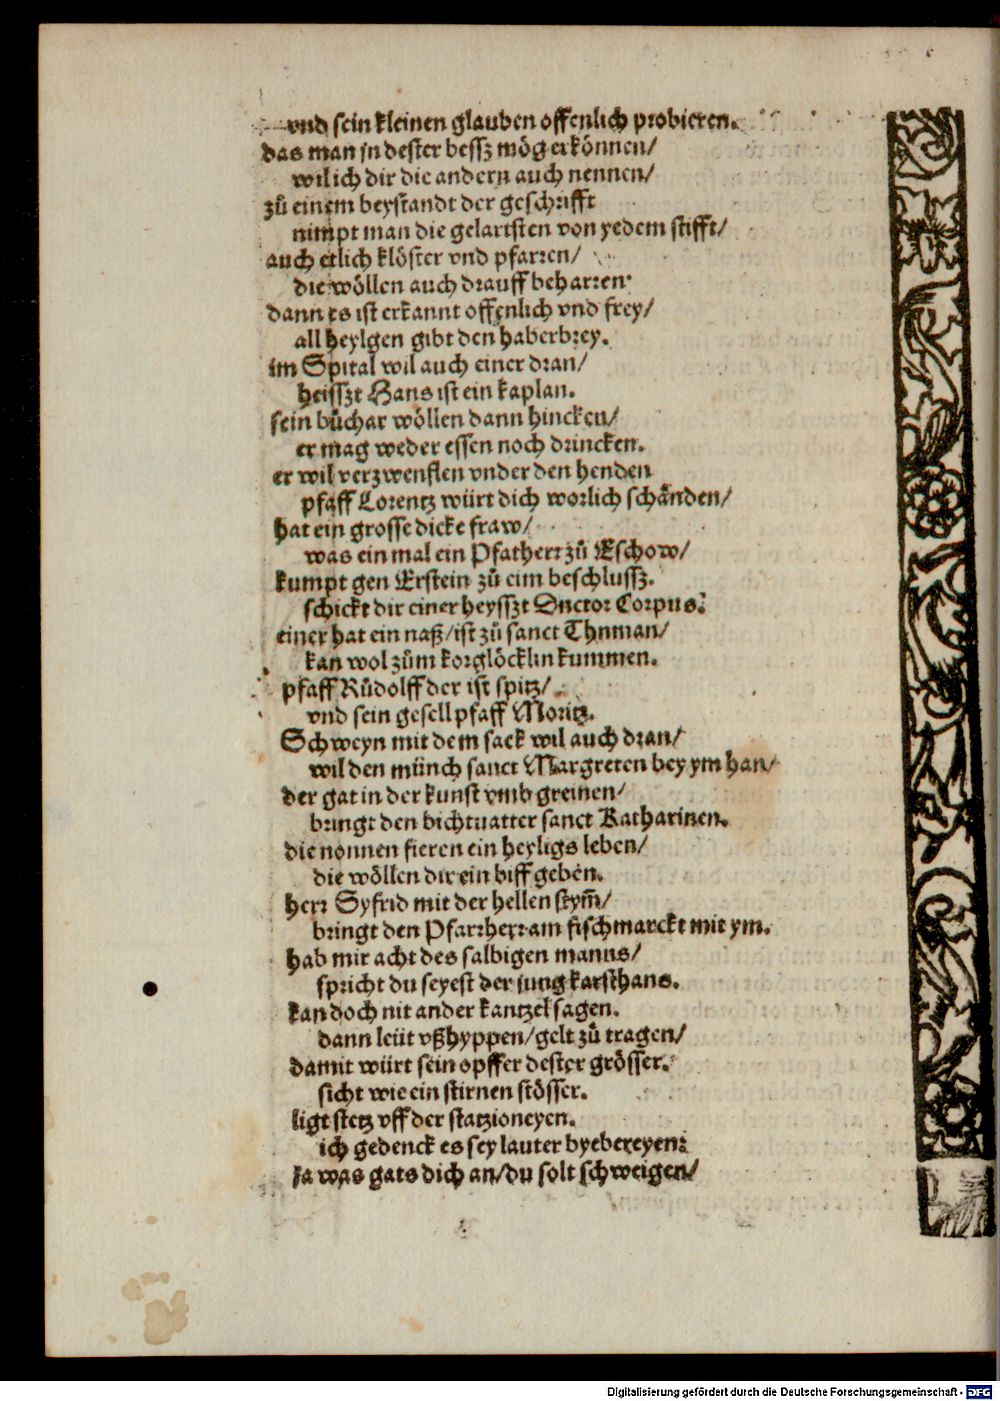 vnd sein kleinen glauben offenlich probieren.
das man jn dester bessz mög erkönnen/
wil ich dir die andern auch nennen/
zů einem beystandt der geschrifft
nimpt man die gelartsten von yedem stifft/
auch etlich klöster vnd pfarren/
die wöllen auch drauff beharren·
dann es ist erkannt offenlich vnd frey/
all heylgen gibt den haberbrey.
im Spital wil auch einer dran/
heisszt Hans ist ein kaplan.
sein bůchar wöllen dann hincken/
er mag weder essen noch drincken.
er wil verzwenflen vnder den henden
pfaff Lorentz würt dich worlich schänden/
hat ein grosse dicke fraw/
was ein mal ein Pfatherr zů Eschow/
kumpt gen Erstein zů eim beschlussz.
schickt dir einer heysszt Dnctor Corpus.
einer hat ein naß/ist zů sanct Thnman/
kan wol zům korglöcklin kummen.
pfaff Růdolff der ist spitz/
vnd sein gesell pfaff Moritz.
Schweyn mit dem sack wil auch dran/
wil den münch sanct Margreten bey ym han/
der gat in der kunst vmb greinen/
bringt den bichtuatter sanct Katharinen.
die nonnen fieren ein heyligs leben/
die wöllen dir ein biff geben.
herr Syfrid mit der hellen stym̄/
bringt den Pfarrherr am fischmarckt mit ym.
hab mir acht des salbigen manns/
spricht du seyest der jung karsthans.
kan doch nit an der kantzel sagen.
dann leüt vßhyppen/gelt zů tragen/
damit würt sein opffer dester grösser.
sicht wie ein stirnen stösser.
ligt stetz vff der statzioneyen.
ich gedenck es sey lauter byebereyen:
ja was gats dich an/du solt schweigen/
Digitalisierung gefördert durch die Deutsche Forschungsgemeinschaft - DFG